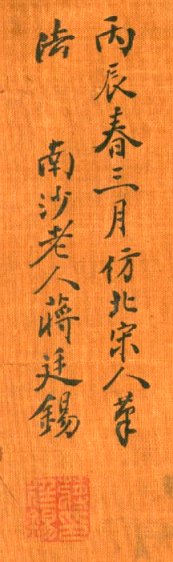 丙辰春三月仿北宋人筆
法 南沙老人蔣廷錫